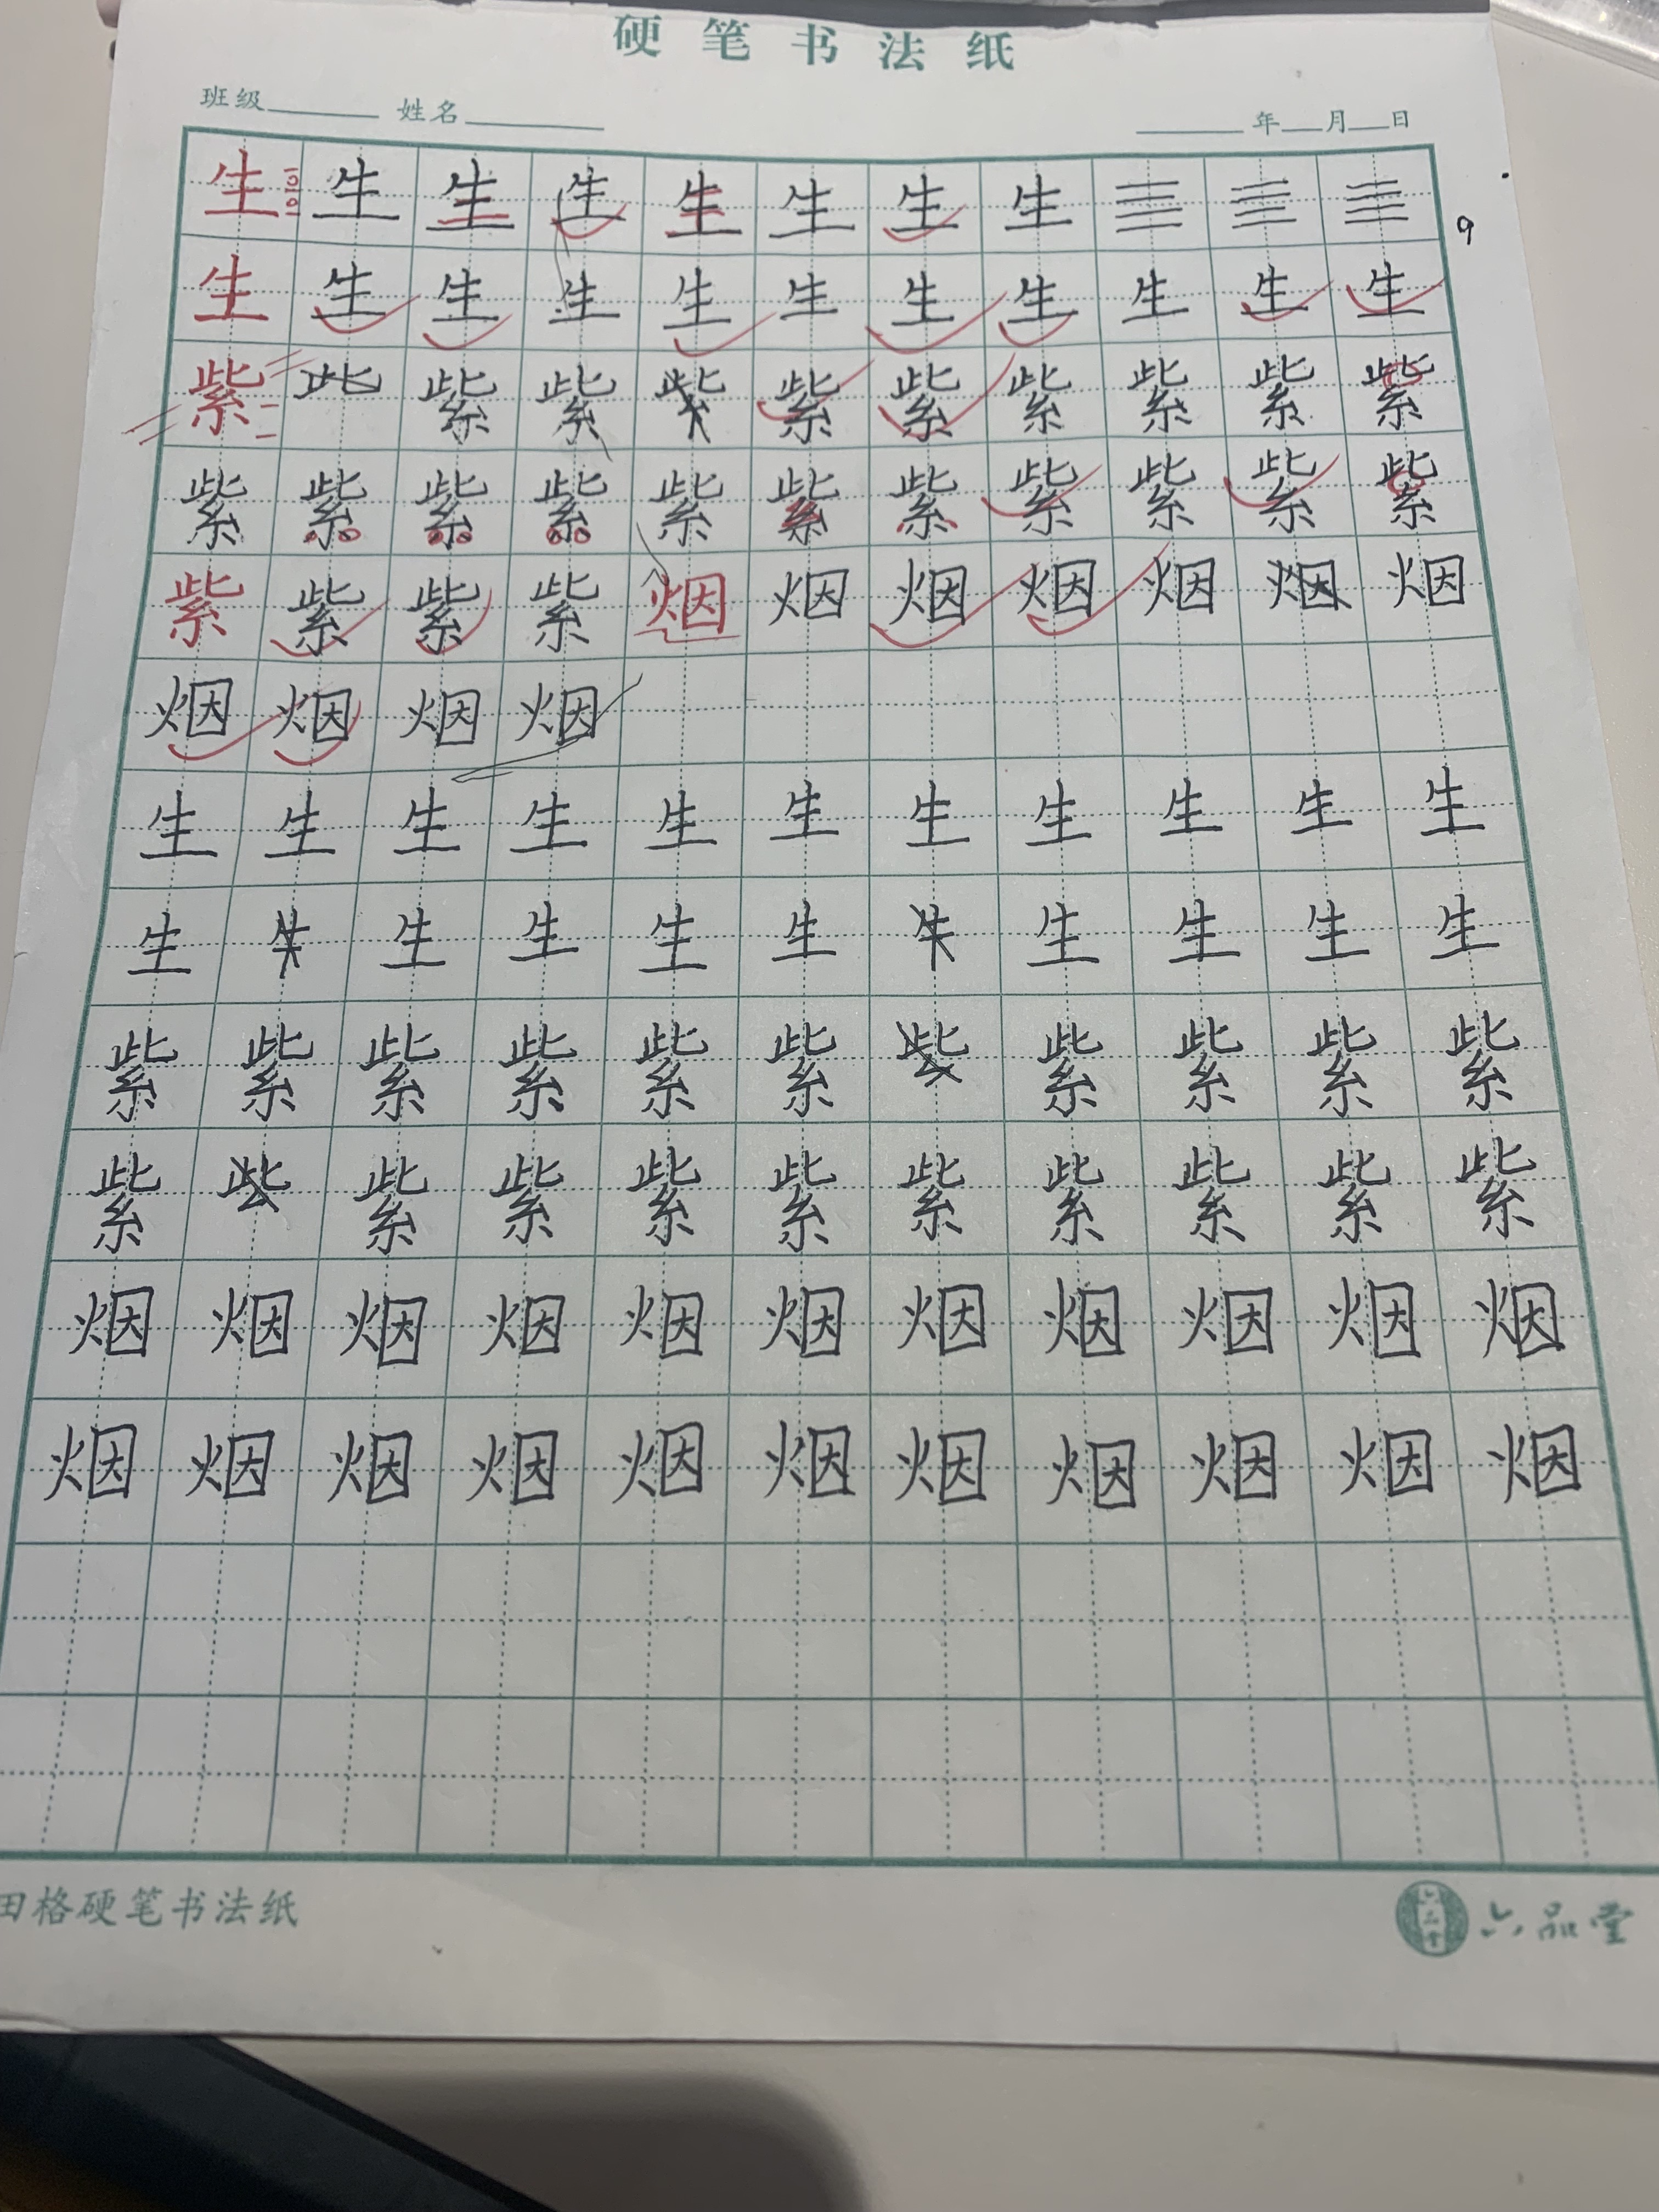 硬笔书法纸
班级 姓名 年 月 日
生 生 生 生 生 生 生 生
9
生 生 生 生 生 生 生 生 生 生 生
紫 此 紫 紫 紫 紫 紫 紫 紫 紫
紫 紫 紫 紫 紫 紫 紫 紫 紫 紫 紫
紫 紫 紫 紫 烟 烟 烟 烟 烟 烟 烟
烟 烟 烟 烟
生 生 生 生 生 生 生 生 生 生 生
生 生 生 生 生 生 生 生 生
紫 紫 紫 紫 紫 紫 紫 紫 紫 紫
紫 紫 紫 紫 紫 紫 紫 紫 紫 紫
烟 烟 烟 烟 烟 烟 烟 烟 烟 烟 烟
烟 烟 烟 烟 烟 烟 烟 烟 烟 烟 烟
田格硬笔书法纸 六品堂